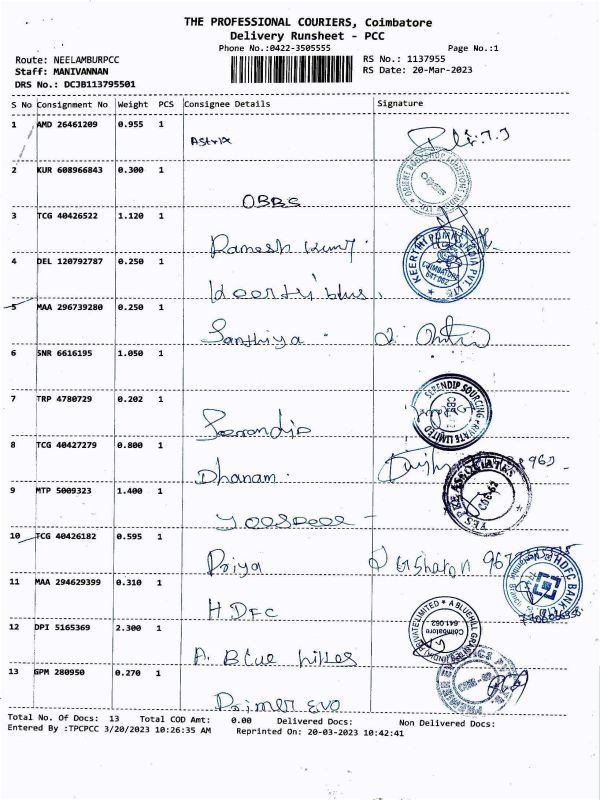 THE PROFESSIONAL COURIERS, Coimbatore
Delivery Runsheet - PCC
Phone No.:0422-3505555 Page No.:1
Route: NEELAMBURPCC RS No.: 1137955
Staff: MANIVANNAN RS Date: 20-Mar-2023
DRS No.: DCJB113795501
S No Consignment No Weight PCS Consignee Details Signature
1 AMD 26461209 0.955 1
Astrix
2 KUR 608966843 0.300 1
OBBS
3 TCG 40426522 1.120 1
Ramesh kumr
4 DEL 120792787 0.250 1
COIMBATORE
641 062
5 MAA 296739280 0.250 1
Santhiya
6 SNR 6616195 1.050 1
7 TRP 4780729 0.202 1
SERENDIP SOURCING PRIVATE LIMITED
8 TCG 40427279 0.800 1
Dhanam.
9 MTP 5009323 1.400 1
COE-62
10 TCG 40426182 0.595 1
Priya
11 MAA 294629399 0.310 1
HDFC BANK
HDFC
12 DPI 5165369 2.300 1
Coimbatore
641.062
A. Blue hilles
13 GPM 280950 0.270 1
Primer Evo
Total No. Of Docs: 13 Total COD Amt: 0.00 Delivered Docs: Non Delivered Docs:
Entered By :TPCPCC 3/20/2023 10:26:35 AM Reprinted On: 20-03-2023 10:42:41